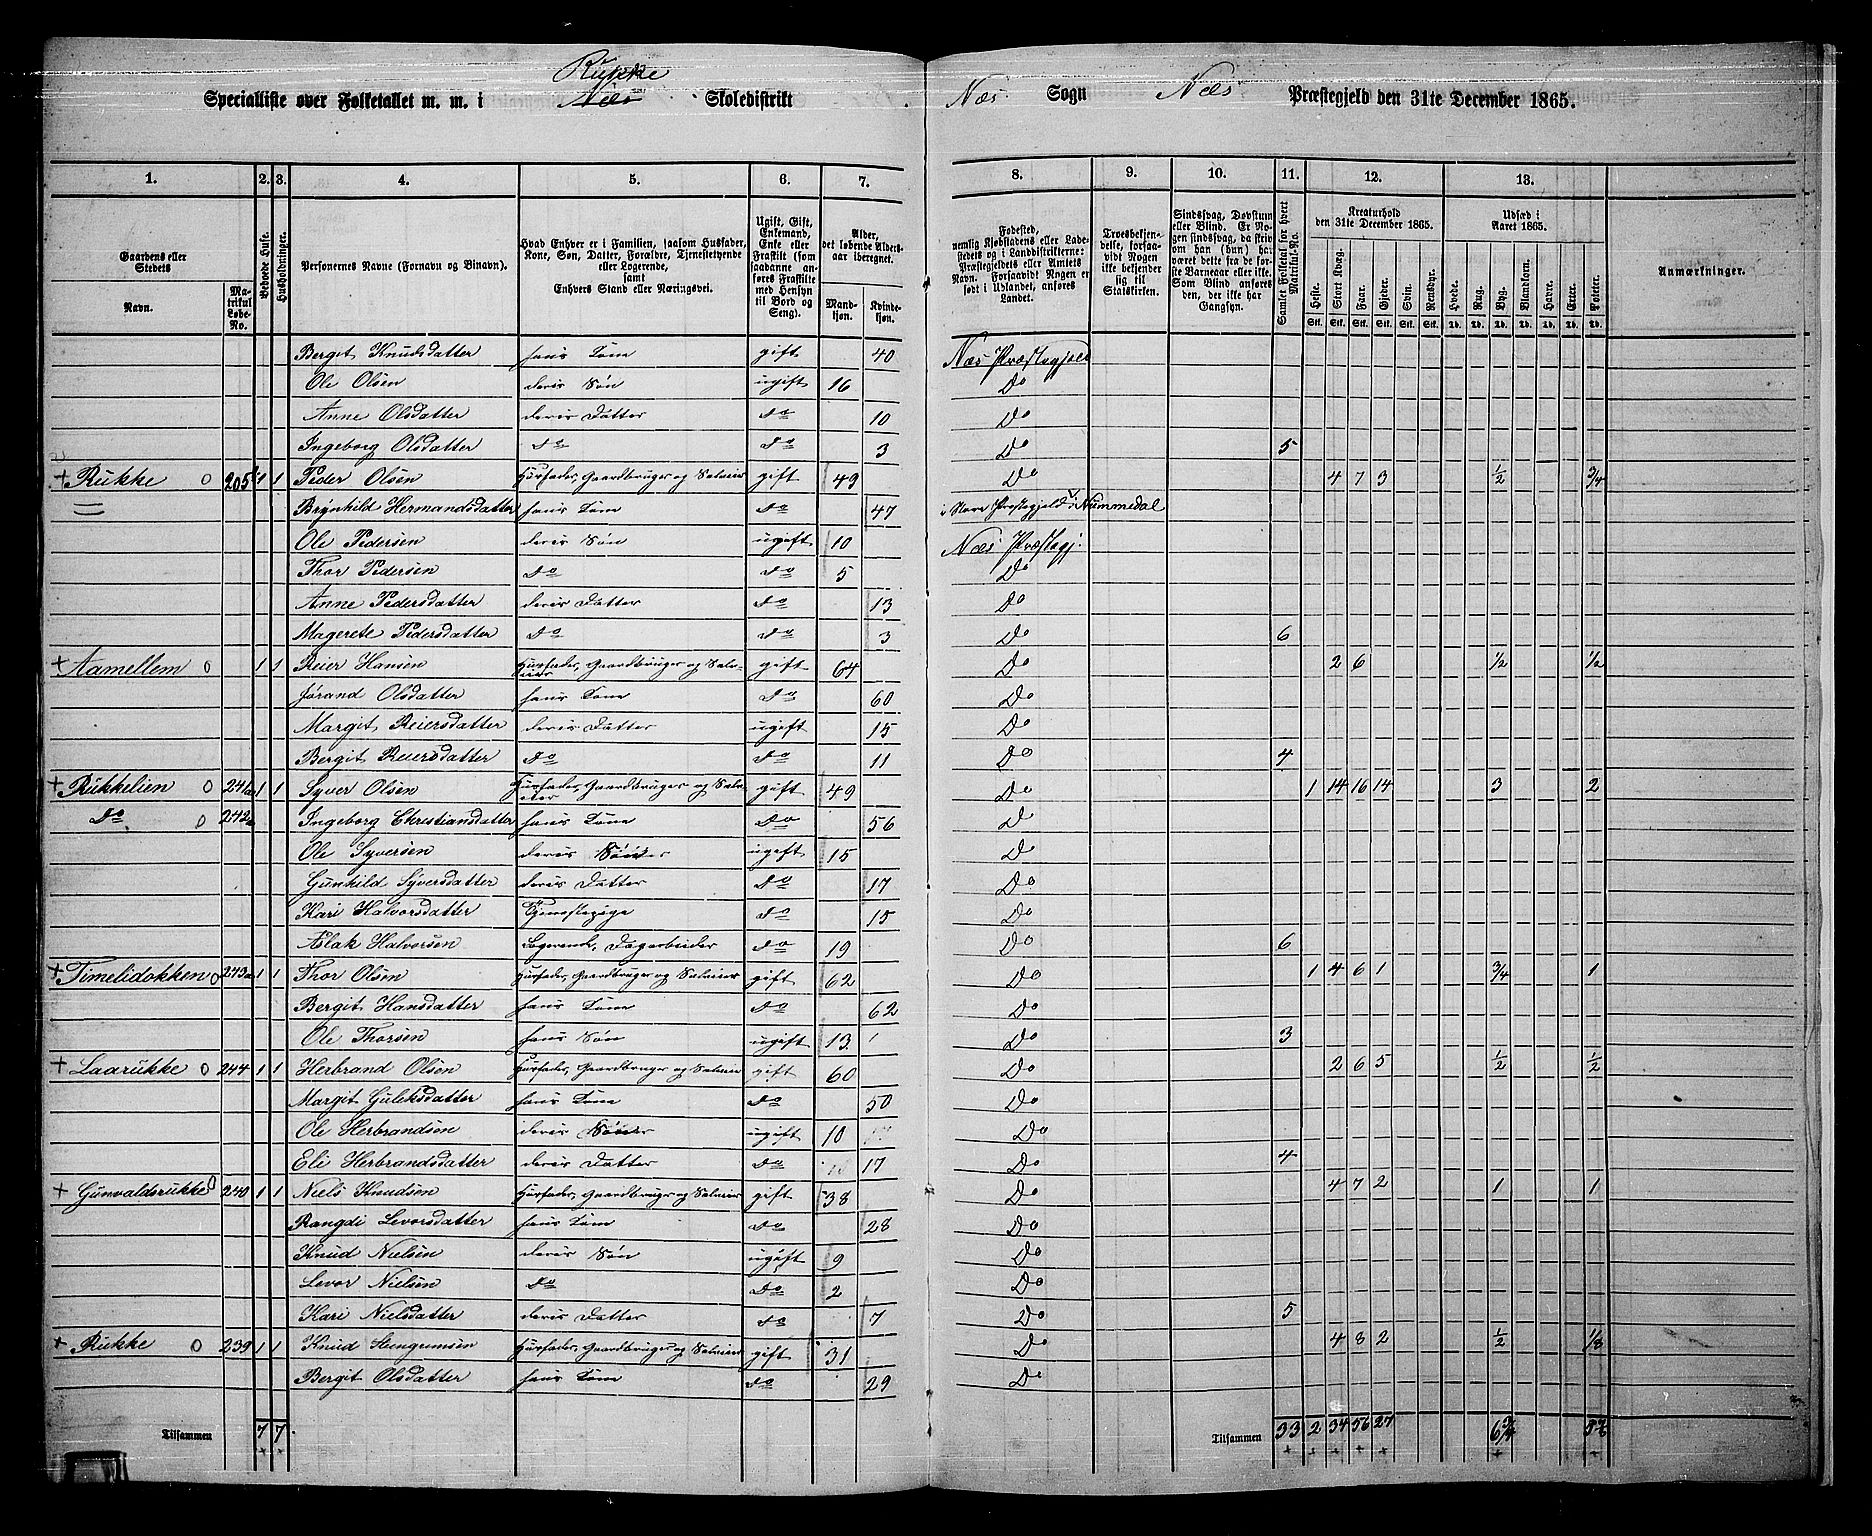 Specialliste over Folketallet m. m. i Rukke Næs Skoledistrikt Næs Sogn Næs Præstegjeld den 31te December 1865.
1. 2. 3. 4. 5. 6. 7. 8. 9. 10. 11. 12. 13.
Gaardens eller Stedets Navn. Matrikul Løbe-No.
Beboede Huse.
Husholdninger.
Personernes Navne (Fornavn og Binavn).
Hvad Enhver er i Familien, saasom Husfader, Kone, Søn, Datter, Forældre, Tjenestetyende eller Logerende, samt Enhvers Stand eller Næringsvei.
Ugift, Gift, Enkemand, Enke eller Fraskilt (som saadanne anføres Fraskilte med Hensyn til Bord og Seng).
Alder, det løbende Aldersaar iberegnet. Mandkjøn. Kvindekjøn.
Fødested, nemlig Kjøbstadens eller Ladestedets og i Landdistrikterne: Præstegjeldets eller Amtets Navn. Forsaavidt Nogen er født i Udlandet, anføres Landet.
Troesbekjendelse, forsaavidt Nogen ikke bekjender sig til Statskirken.
Sindssvag, Døvstum eller Blind. Er Nogen sindssvag, da skriv om han (hun) har været dette fra de første Barneaar eller ikke. Som Blind anføres den, der ikke har Gangsyn.
Samlet Folketal for hvert Matrikul-No.
Kreaturhold den 31te December 1865. Heste. Stort Kvæg. Faar. Gjeder. Svin. Rensdyr.
Udsæd i Aaret 1865. Hvede. Rug. Byg. Blandkorn. Havre. Erter. Poteter.
Anmærkninger.
Bergit Knudsdatter hans Kone gift 40 Næs Præstegjeld
Ole Olsen deres Søn ugift 16 Do
Anne Olsdatter deres Datter Do 10 Do
Ingeborg Olsdatter Do Do 3 Do 5
+ Rukke 205 1 1 Peder Olsen Husfader, Gaardbruger og Selveier gift 49 Do 4 7 3 ½ ¾
Brynhild Hermandsdatter hans Kone Do 47 Præstegjeld i Nummedal
Ole Pedersen deres Søn ugift 10 Næs Præstegj.
Thor Pedersen Do Do 5 Do
Anne Pedersdatter deres Datter Do 13 Do
Magerete Pedersdatter Do Do 3 Do 6
+ Aamellem 1 1 Reier Hansen Husfader, Gaardbruger og Selveier gift 64 Do 2 6 ½ ½
Jørand Olsdatter hans Kone Do 60 Do
Margit Reiersdatter deres Datter ugift 15 Do
Bergit Reiersdatter Do Do 11 Do 4
+ Rukkelien 241a 1 1 Syver Olsen Husfader, Gaardbruger og Selveier gift 49 Do 1 14 16 14 3 2
Do 242 Ingeborg Christiansdatter hans Kone Do 56 Do
Ole Syversen deres Søn ugift 15 Do
Gunhild Syversdatter deres Datter Do 17 Do
Kari Halvorsdatter Tjenestepige Do 15 Do
Aslak Halvorsen Logerende, Dagarbeider Do 19 Do 6
+ Timelidokken 243a 1 1 Thor Olsen Husfader, Gaardbruger og Selveier gift 62 Do 1 4 6 1 ¾ 1
Bergit Hansdatter hans Kone Do 62 Do
Ole Thorsen hans Søn ugift 13 Do 3
+ Laarukke 244 1 1 Herbrand Olsen Husfader, Gaardbruger og Selveier gift 60 Do 2 6 5 ½ ½
Margit Guleksdatter hans Kone Do 50 Do
Ole Herbrandsen deres Søn ugift 10 Do
Eli Herbrandsdatter deres Datter Do 17 Do 4
+ Gunvaldsrukke 240 1 1 Niels Knudsen Husfader, Gaardbruger og Selveier gift 38 Do 4 7 2 1 1
Rangdi Levorsdatter hans Kone Do 28 Do
Knud Nielsen deres Søn ugift 9 Do
Levor Nielsen Do Do 2 Do
Kari Nielsdatter deres Datter Do 7 Do 5
+ Rukke 239 1 1 Knud Husfader, Gaardbruger og Selveier gift 31 Do 4 8 2 ½ ⅛
Bergit Olsdatter hans Kone Do 29 Do
Tilsammen 7 7 Tilsammen 33 2 34 56 27 6¾